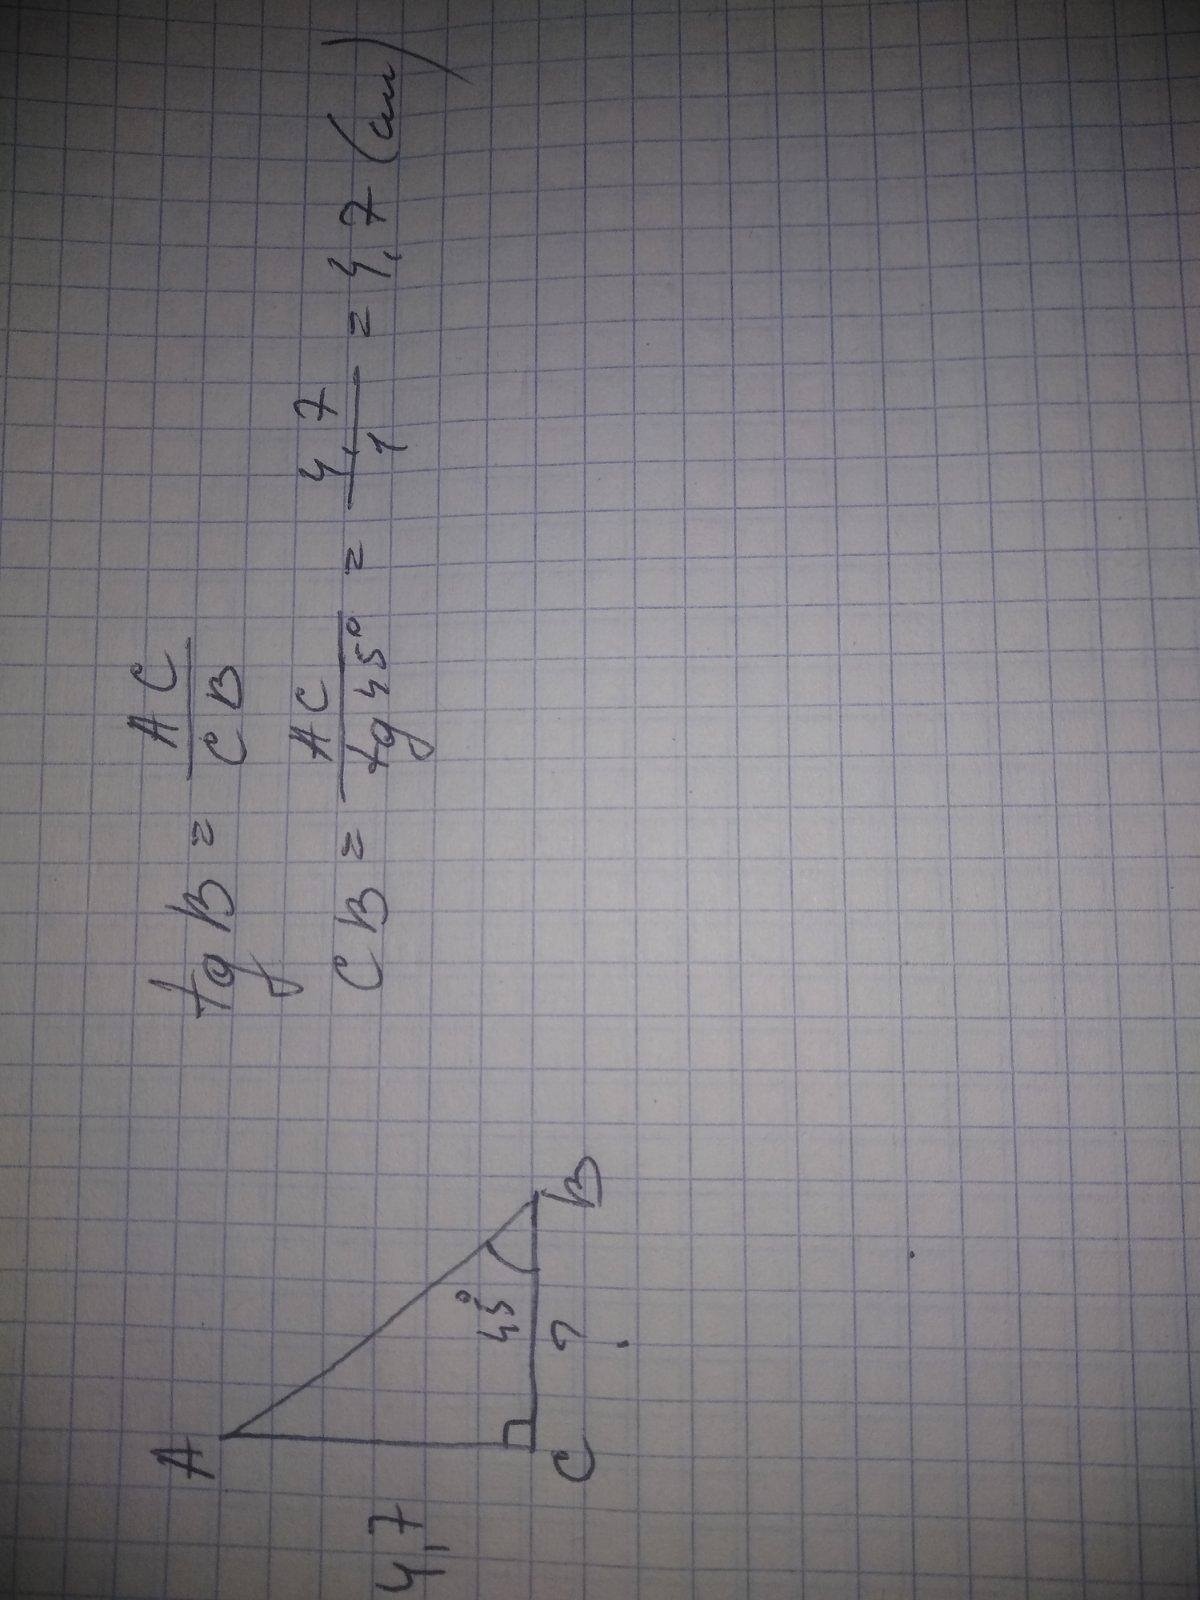 A
4,7
45°
C ? B
tg B = AC / CB
CB = AC / tg 45° = 4,7 / 1 = 4,7 (см)